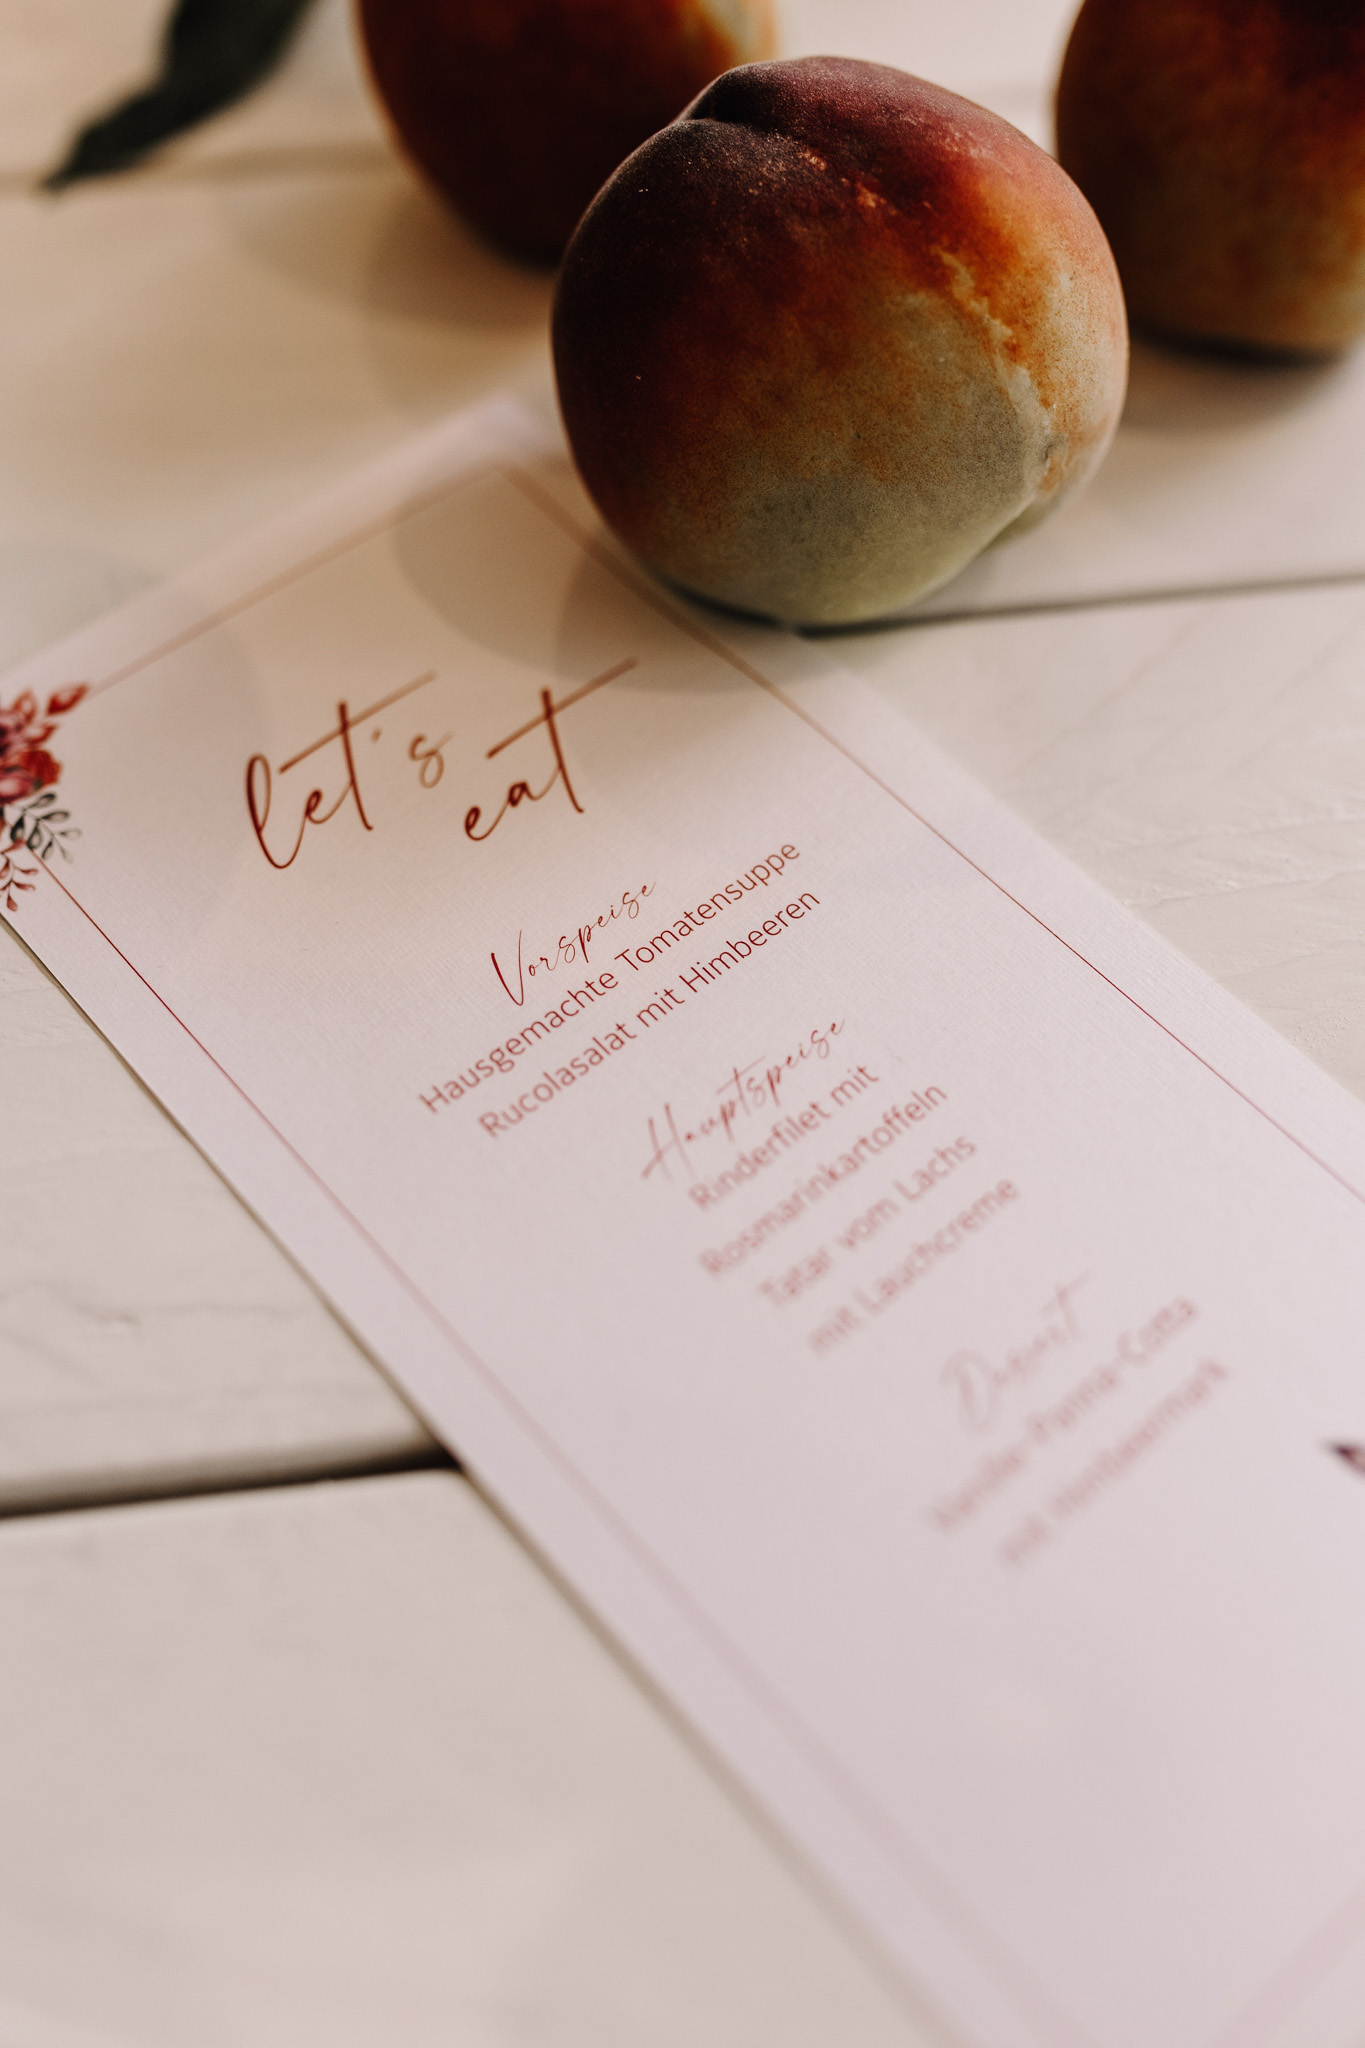 let's
eat
Vorspeise
Hausgemachte Tomatensuppe
Rucolasalat mit Himbeeren
Hauptspeise
Rinderfilet mit
Rosmarinkartoffeln
Tatar vom Lachs
mit Lauchcreme
Dessert
Vanille-Panna-Cotta
mit